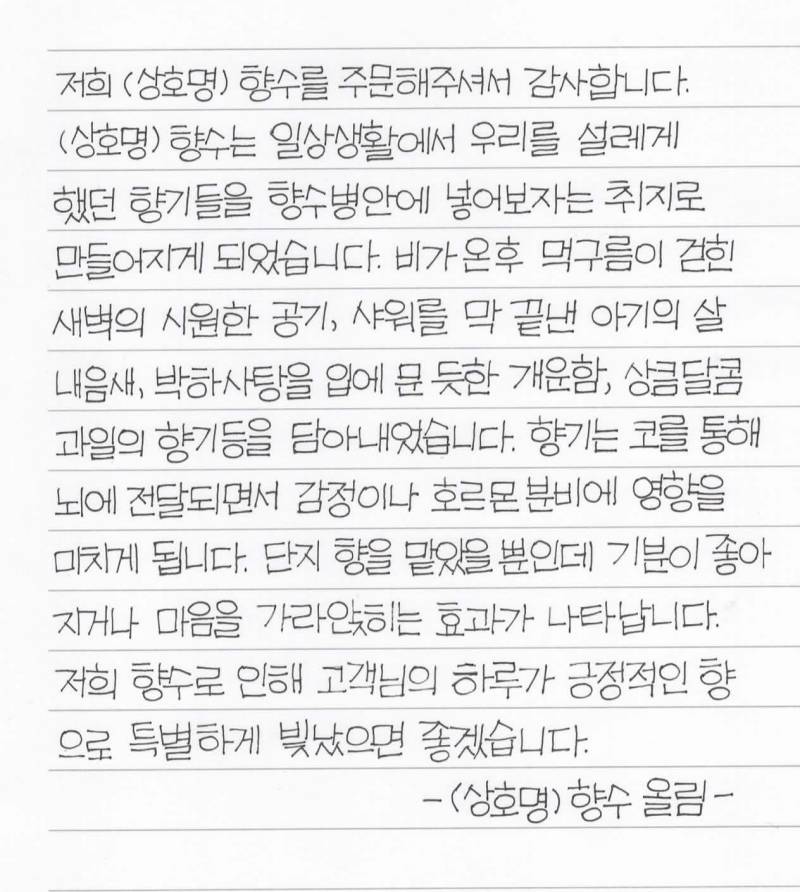 저희 (상호명) 향수를 주문해주셔서 감사합니다.
(상호명) 향수는 일상생활에서 우리를 설레게
했던 향기들을 향수병안에 넣어보자는 취지로
만들어지게 되었습니다. 비가 온후 먹구름이 걷힌
새벽의 시원한 공기, 샤워를 막 끝낸 아기의 살
내음새, 박하사탕을 입에 문 듯한 개운함, 상큼달콤
과일의 향기등을 담아내었습니다. 향기는 코를 통해
뇌에 전달되면서 감정이나 호르몬 분비에 영향을
미치게 됩니다. 단지 향을 맡았을 뿐인데 기분이 좋아
지거나 마음을 가라앉히는 효과가 나타납니다.
저희 향수로 인해 고객님의 하루가 긍정적인 향
으로 특별하게 빛났으면 좋겠습니다.
- (상호명) 향수 올림 -